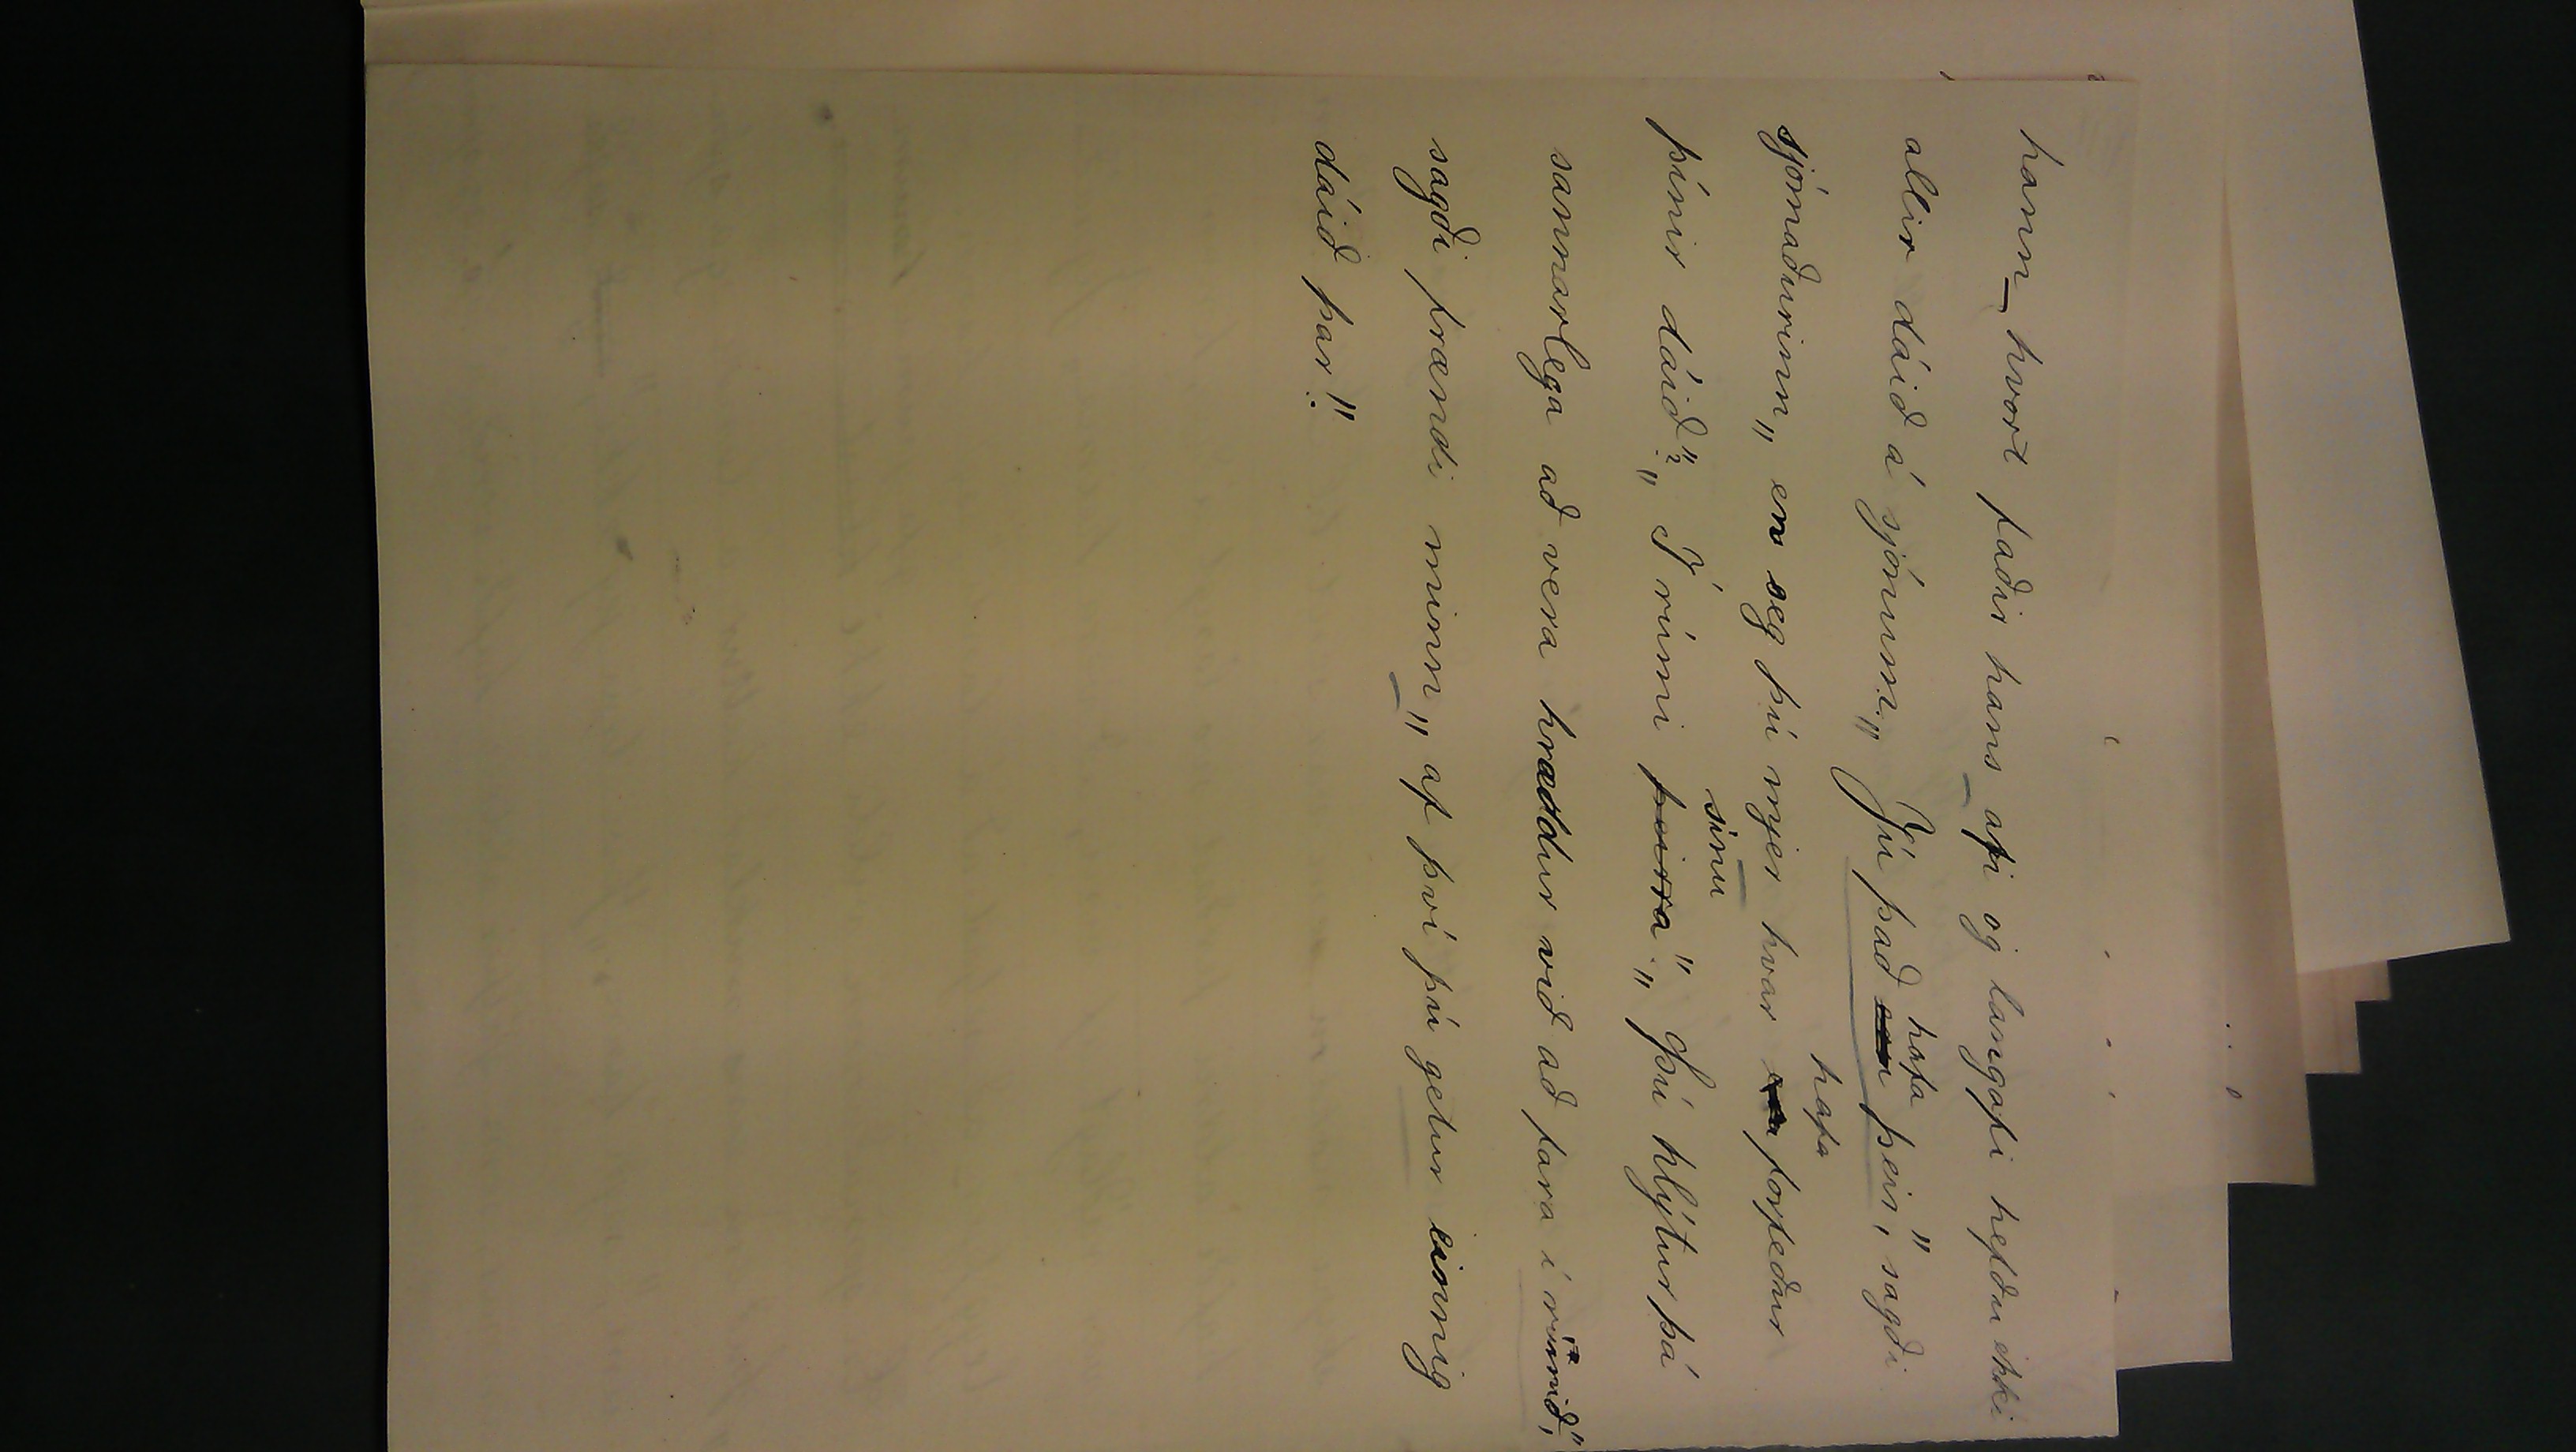 hann hvort faðir hans afi og langafi hefðu ekki
allir dáið á sjónum. „Jú það hafa þeir," sagði
sjómaðurinn „en seg þú mjer hvar hafa forfeður
þínir dáið"? „Í rúmi þeirra sínu". „Þú hlýtur þá
sannarlega að vera hræddur við að fara í rúmið,"
sagði frændi minn „af því þú getur einnig
dáið þar!"